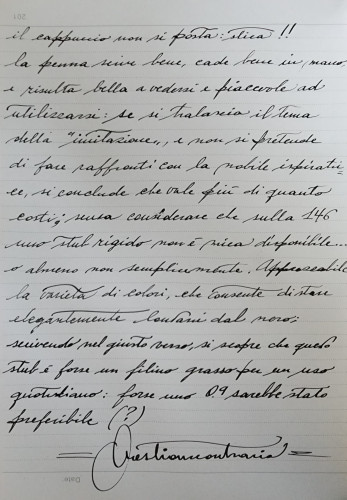 il cappuccio non si posta: stica !!
la penna scrive bene, cade bene in mano
e risulta bella a vedersi e piacevole ad
utilizzarsi: se si tralascia il tema
della "imitazione,, e non si pretende
di fare raffronti con la nobile ispiratri=
ce, si conclude che vale più di quanto
costi; senza considerare che sulla 146
uno stub rigido non è mica disponibile...
o almeno non semplicemente. Apprezzabile
la varietà di colori, che consente di stare
elegantemente lontani dal nero;
scrivendo, nel giusto verso, si scopre che questo
stub è forse un filino grasso per un uso
quotidiano: forse uno 0.9 sarebbe stato
preferibile (?)
Date